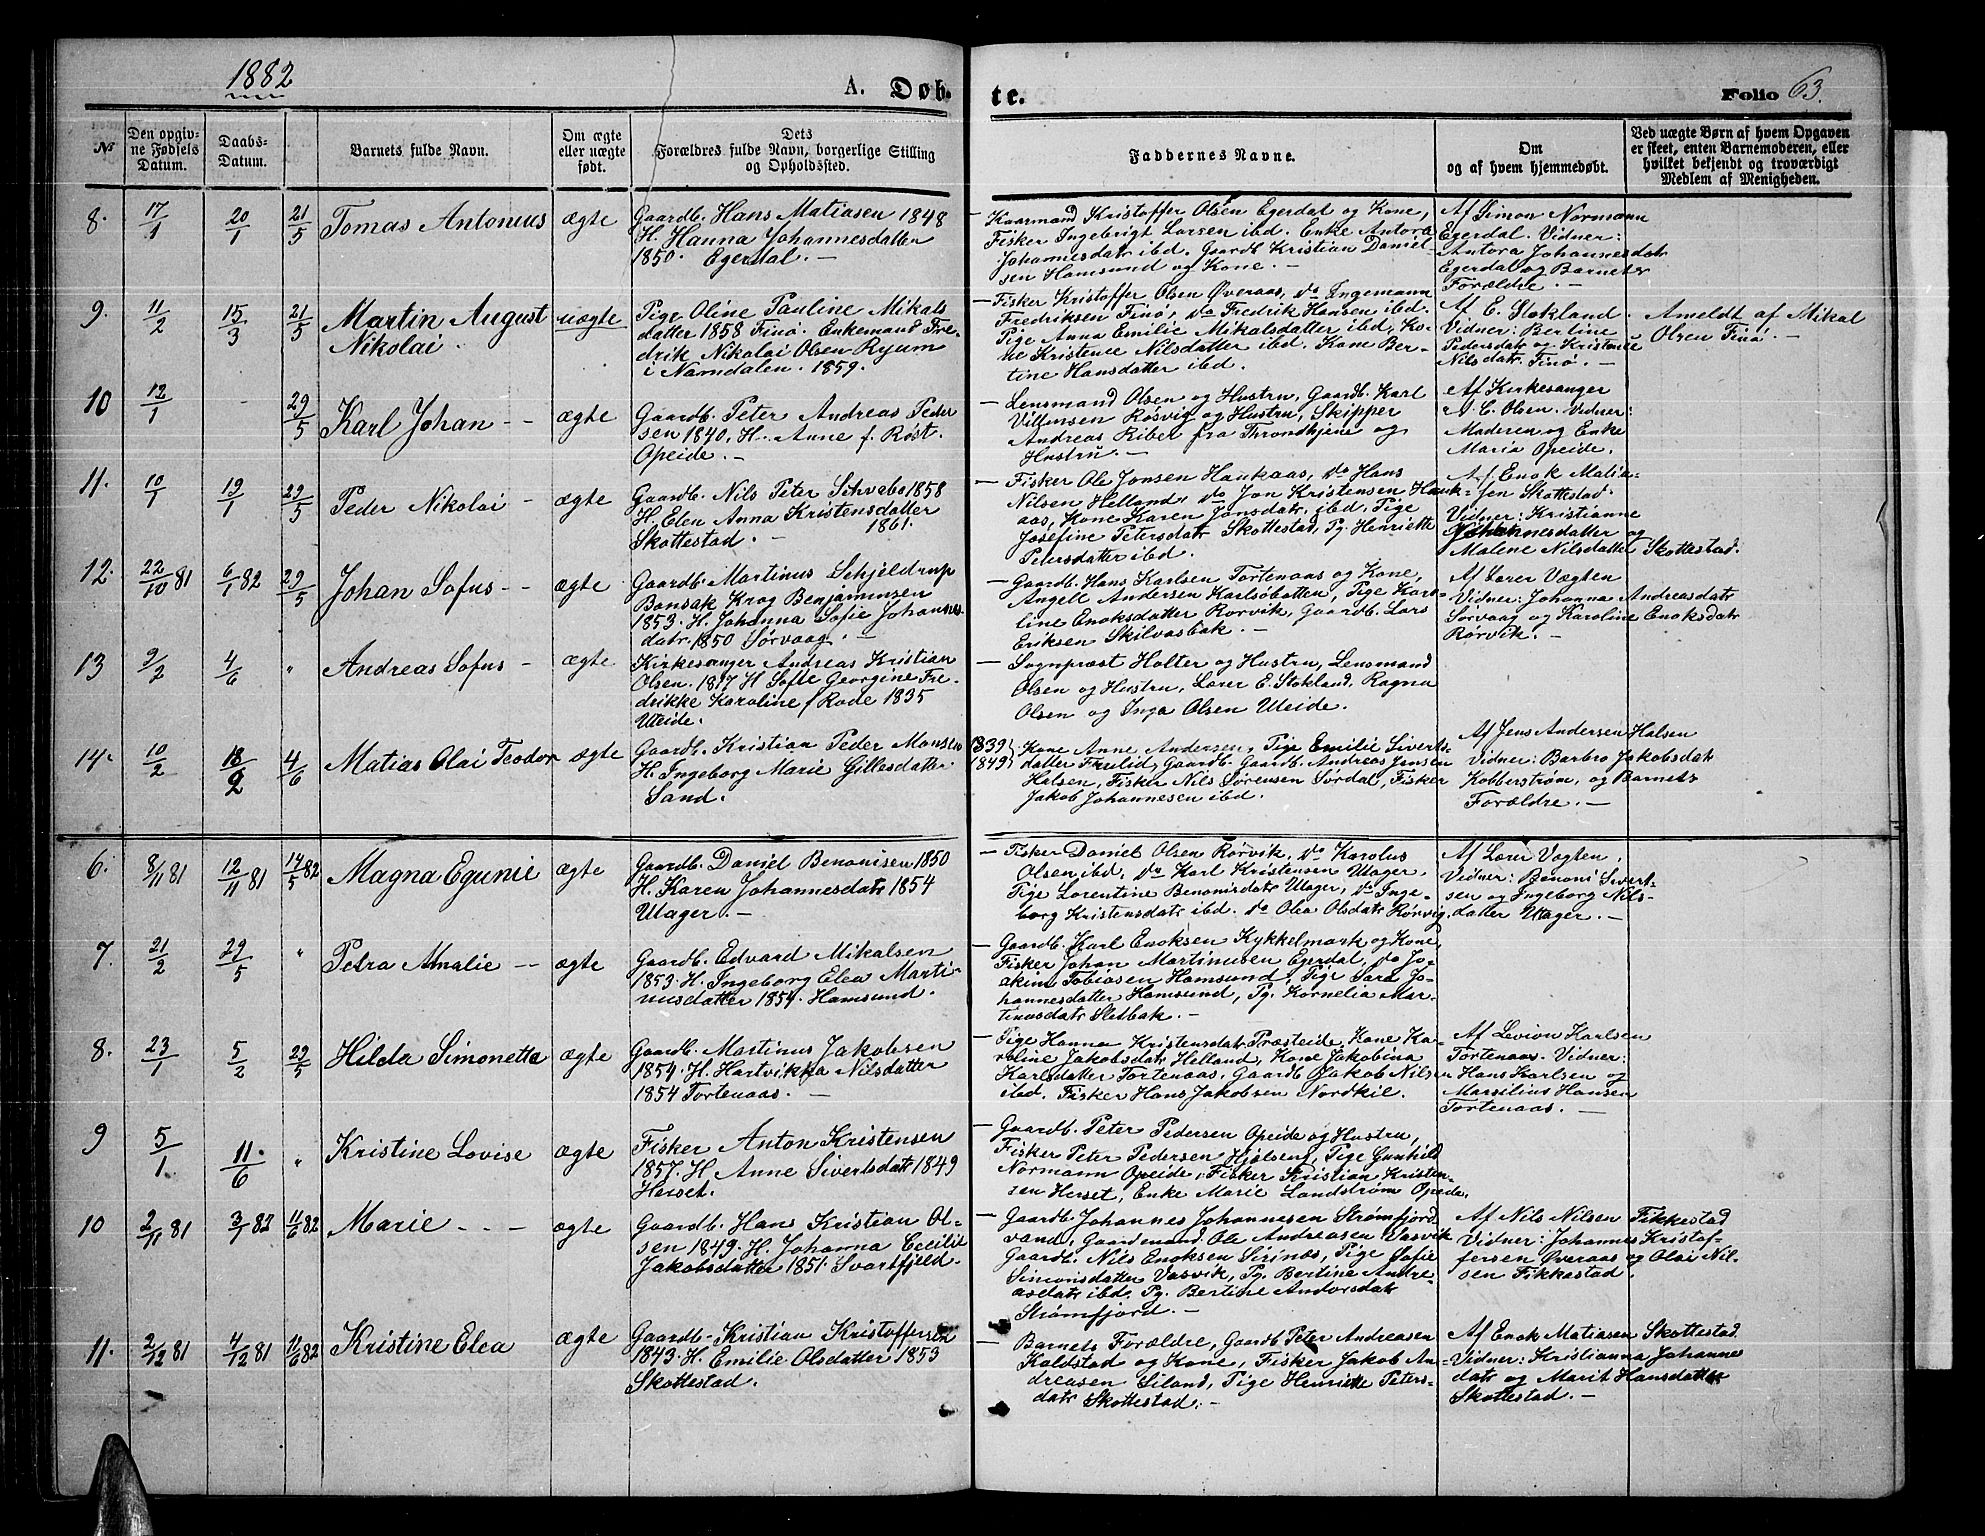 1882
A. Døb-
te.
Folio 63.
№
Den opgiv-
ne Fødsels
Datum.
Daabs-
Datum.
Barnets fulde Navn.
Om ægte
eller uægte
født.
Dets
Forældres fulde Navn, borgerlige Stilling
og Opholdssted.
Faddernes Navne.
Om
og af hvem hjemmedøbt.
Ved uægte Børn af hvem Opgaven
er skeet, enten Barnemoderen, eller
hvilket bekjendt og troværdigt
Medlem af Menigheden.
8. 17/1 20/1 21/5 Tomas Antonius ægte
Gaardb. Hans Matiasen 1848
H. Hanna Johannesdatter
1850. Egerdal. —
— Kaarmand Kristoffer Olsen Egerdal og Kone,
Fisker Ingebrigt Larsen ibd. Enke Antora
Johannesdatr ibd. Gaardb Kristian Daniel-
sen Hamsund og Kone. —
Af Simon Normann
Egerdal. Vidner:
Antora Johannesdatr
Egerdal og Barnets
Forældre. —
9. 11/2 15/3 21/5 Martin August
Nikolai. uægte
Pige Oline Pauline Mikals
datter 1858 Finø. Enkemand Fre-
drik Nikolai Olsen Ryum
i Namdalen. 1859.
— Fisker Kristoffer Olsen Øveraas, do Ingemann
Fredriksen Finø, do Fredrik Hansen ibd.
Pige Anna Emilie Mikalsdatter ibd, Ko-
ne Kristence Nilsdatter ibd. Kone Ber-
tine Hansdatter ibd.
Af E. Stokland.
Vidner: Bertine
Pedersdatr og Kristence
Nilsdatr. Finø. —
Ameldt af Mikal
Olsen Finø. —
10 12/1 - 29/5 Karl Johan - - ægte
Gaardb. Peter Andreas Peder
sen 1840, H. Anne f. Røst.
Opeide. —
— Lensmand Olsen og Hustru, Gaardb. Karl
Vilfunsen Røsvig og Hustru, Skipper
Andreas Riber fra Throndhjene og
Hustru. —
Af Kirkesanger
A. C. Olsen. Vidner:
Maderen og Enke
Maria Opeide.
11. 10/1 19/1 29/5 Peder Nikolai - ægte
Gaardb. Nils Peter Schvabo 1858
H. Elen Anna Kristensdatter
1861.
Skottestad. —
— Fisker Ole Jonsen Haukaas, do Hans
Nilsen Helland, do Jon Kristensen Hauk-
aas, Kone Karen Jonsdatr. ibd. Pige
Josefine Petersdatr Skottestad, Pg. Henriette
Petersdatter ibd.
Af Enok Matia-
sen Skottestad.
Vidner: Kristianne
Johannesdatter og
Malene Nilsdatter Skottestad.
12. 22/10 81 6/1 82 29/5 Johan Sofus - - ægte
Gaardb. Martinus Schjeldrup
Bonsak Krog Benjaminsen
1853. H. Johanna Sofie Johannes-
datr. 1850 Sørvaag. —
— Gaardb. Hans Karlsen Tortenaas og Kone,
Angell Andersen Karlsøbotten, Pige Karo-
line Enoksdatter Rørvik, Gaardb. Lars
Eriksen Skilvasbak. —
Af Lærer Vogten
Vidner: Johanna Andreasdatr
Sørvaag og Karoline Enoksdatr
Rørvik. —
13 9/2 4/6 " Andreas Sofus - ægte
Kirkesanger Andreas Kristian
Olsen. 1817 H Sofie Georgine Fre-
drikke Karoline f Rode 1835
Uteide.
— Sognpræst Holter og Hustru, Lensmand
Olsen og Hustru, Lærer E. Stokland, Ragna
Olsen og Inga Olsen Uteide.
14. 10/2 18/2 4/6 Matias Olai Teodor ægte
Gaardb. Kristian Peder Monsen
H. Ingeborg Marie Gillesdatter
Sand.
1839
1849
Kone Anne Andersen, Pige Emilie Siverts-
datter Freilid, Gaardb. Gaardb. Andreas Jensen
Halsen, Fisker Nils Sørensen Sørdal, Fisker
Jakob Johannesen ibd.
Af Jens Andersen Halsen
Vidner: Barbro Jakobsdatr
Kobberstrøm, og Barnets
Forældre. —
6. 8/11 81 12/11 81 14/5 82 Magna Egunie ægte
Gaardb. Daniel Benonisen 1850
H. Karen Johannesdatr 1854
Utager. —
— Fisker Daniel Olsen Rørvik, do Karolus
Olsen ibd, do Karl Kristensen Utager.
Pige Lorentine Benonisdatr Utager, do Inge-
borg Kristensdatr ibd. do Olea Olsdatr Rørvig.
Af Lærer Vogten.
Vidner: Benoni Sivert-
sen og Ingeborg Nils-
datter Utager. —
7. 21/2 29/5 " Petra Amalie - - ægte
Gaardb. Edvard Mikalsen
1853. H. Ingeborg Elea Marti-
nusdatter 1854. Hamsund.
— Gaardb. Karl Enoksen Kykkelmark og Kone,
Fisker Johan Martinusen Egerdal, do Jo-
akim Tobiasen Hamsund, Pige Sara Jo-
hannesdatter Hamsund, Pg. Kornelia Mar-
tinusdatr Sletbak. —
8. 23/1 5/2 29/5 Hilda Simonetta ægte
Gaardb. Martinus Jakobsen
1854. H. Hartvikka Nilsdatter
1854 Tortenaas. —
— Pige Hanna Kristensdatr Præsteide, Kone Ka-
roline Jakobsdatr Helland, Kone Jakobina
Karlsdatter Tortenaas, Gaardb Jakob Nilsen
ibd. Fisker Hans Jakobsen Nordkil.
Af Levion Karlsen
Tortenaas. Vidner:
Hans Karlsen og
Marsilius Hansen
Tortenaas. —
9 5/1 11/6 " Kristine Lovise ægte
Fisker Anton Kristensen
1857. H Anne Sivertsdatr 1849
Herset.
— Gaardb. Peter Pedersen Opeide og Hustru,
Fisker Peter Pedersen Hjelseng, Pige Gunhild
Normann Opeide, Fisker Kristian Kristen-
sen Herset, Enke Marie Landstrøm Opeide.
10 2/11 81 3/1 82 11/6 82 Marie - - - ægte
Gaardb. Hans Kristian Ol-
sen 1849. H. Johanna Cecilie
Jakobsdatter 1851. Svartfjeld.
— Gaardb. Johannes Johannesen Strømfjord
vand, Gaardmand Ole Andreasen Vasvik
Gaardb. Nils Enoksen Sirinæs, Pige Sofie
Simonsdatter Vasvik, Pg. Bertine Andre-
asdatr ibd. Pg. Bertine Andorsdatr
Strømfjord. —
Af Nils Nilsen Fikkestad
Vidner: Johannes Kristof-
fersen Øveraas og Olai Nil-
sen Fikkestad.
11. 2/12 81 4/12 81 11/6 82 Kristine Elea ægte
Gaardb. Kristian Kristoffersen
1843. H. Emilie Olsdatter 1853
Skottestad.
— Barnets Forældre, Gaardb. Peter Andreasen
Kaldstad og Kone, Fisker Jakob An-
dreasen Siland, Pige Henriette Peters-
datr Skottestad. —
Af Enok Matiasen Skottestad
Vidner: Kristianna Johanne
datr og Marit Hansdatter
Skottestad. —